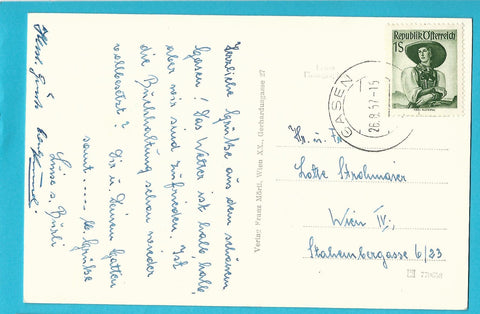 Herzliche Grüße aus dem schönen
Gasen! Das Wetter ist halb, halb,
aber wir sind zufrieden. Ist
die Buchhaltung schon wieder
vollbesetzt? Dir u. Deinem Gatten
samt..... lb. Grüße
Luise u. Burli
Herzl. Grüße
Verlag Franz Mörtl, Wien XX., Gerhardusgasse 27
Republik Österreich
1S
GASEN
26.8.57-15
Hr. u. Fr.
Lotte Strohmaier
Wien IV,
Starhembergasse 6/23